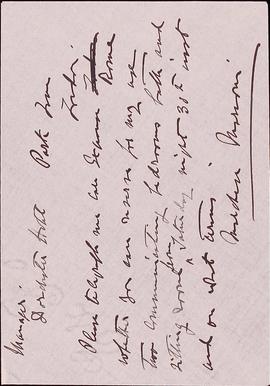 Manager.
Dorchester Hotel
Park Lane
London.
Please telegraph me see Deanna Rome
whether you can reserve for my use
two communicating bedrooms bath and
sitting room from Saturday night 30th inst
and on what terms
Marchese Marconi